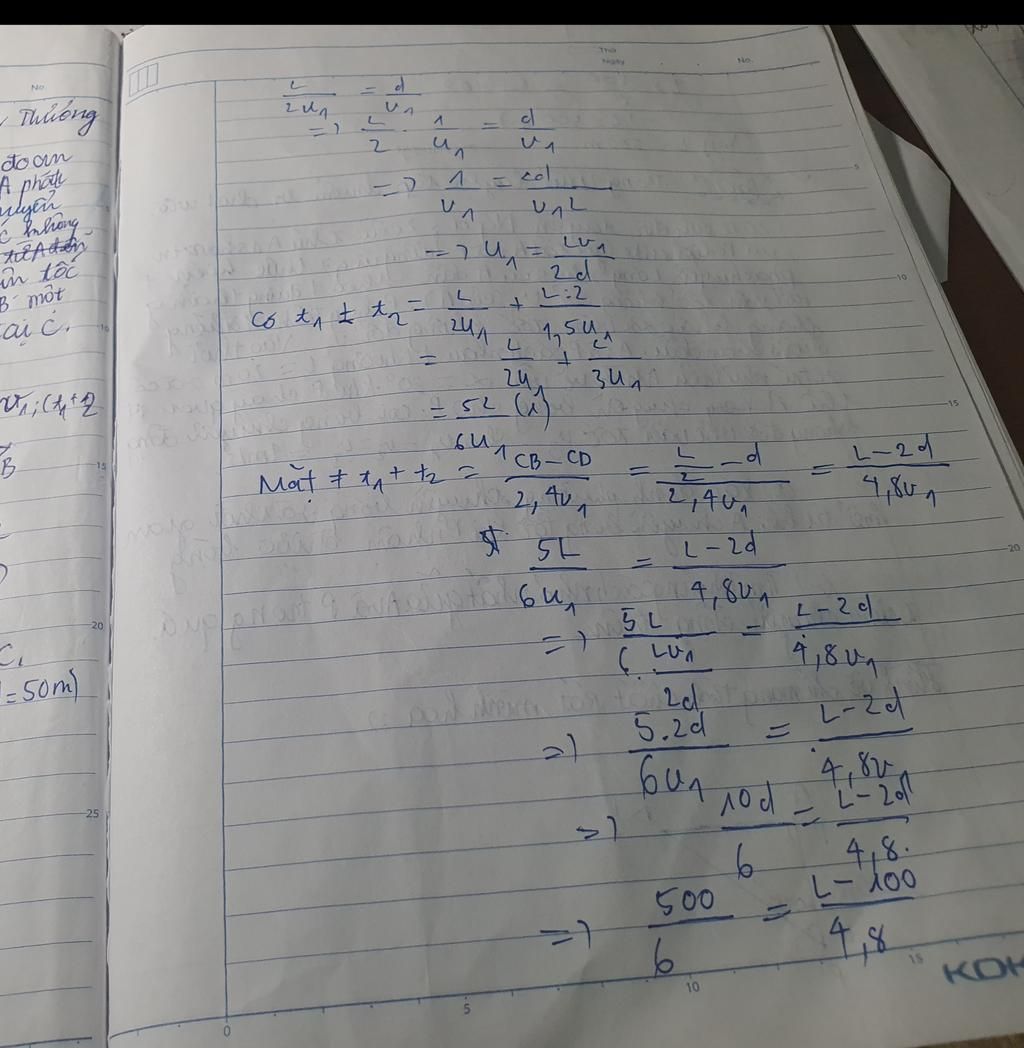 No.
Thương
đoạn
A phát
chuyển
C không
ến tốc
B một
tại C.
v₁; (t₁+t2
B
C,
=50m)
15
20
25
Thứ
Ngày
No.
L/2u₁ = d/v₁
=> L/2 . 1/u₁ = d/v₁
=> 1/u₁ = 2d/v₁L
=> u₁ = Lv₁/2d
Có t₁ + t₂ = L/2u₁ + L:2/1,5u₁
= L/2u₁ + L/3u₁
= 5L/6u₁ (1)
Mặt ≠ t₁ + t₂ = CB-CD/2,4v₁ = (L/2 - d)/2,4v₁ = L-2d/4,8v₁
5L/6u₁ = L-2d/4,8v₁
=> 5L/(6.Lv₁/2d) = L-2d/4,8v₁
=> 5.2d/6v₁ = L-2d/4,8v₁
=> 10d/6 = L-2d/4,8.
=> 500/6 = L-100/4,8
5
10
15
20
0
5
10
15
KOK